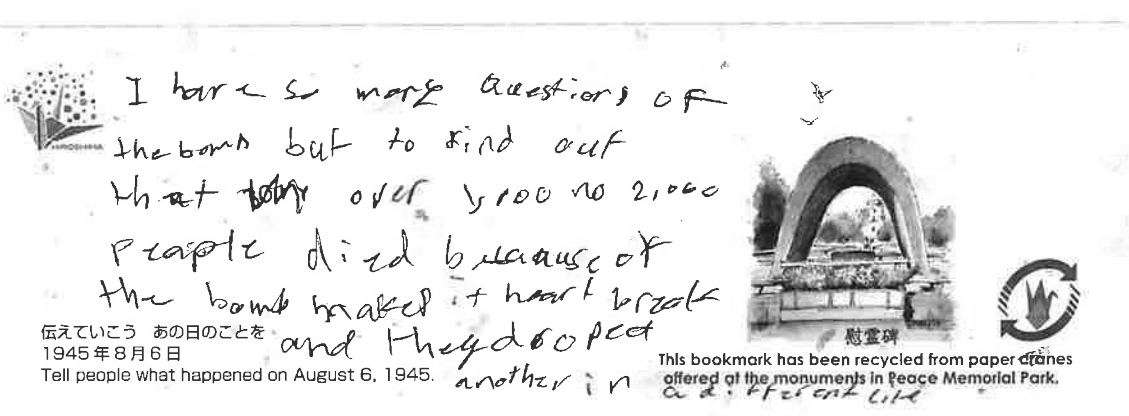 I have so many questions of
the bomb but to find out
that over 1,000 no 2,000
people died because of
the bomb makes it heart break
and they droped
another in a different
HIROSHIMA
伝えていこう あの日のことを
1945年8月6日
Tell people what happened on August 6, 1945.
慰霊碑
This bookmark has been recycled from paper cranes
offered at the monuments in Peace Memorial Park.